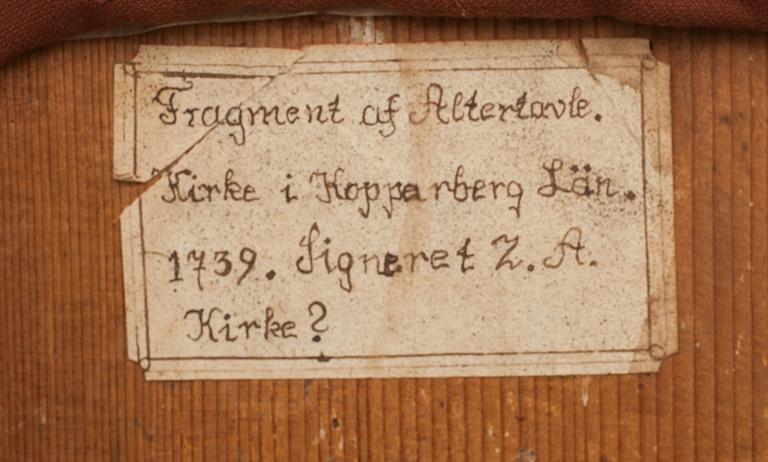 Fragment af Altertavle.
Kirke i Kopparberg Län.
1739. Signeret Z. A.
Kirke?